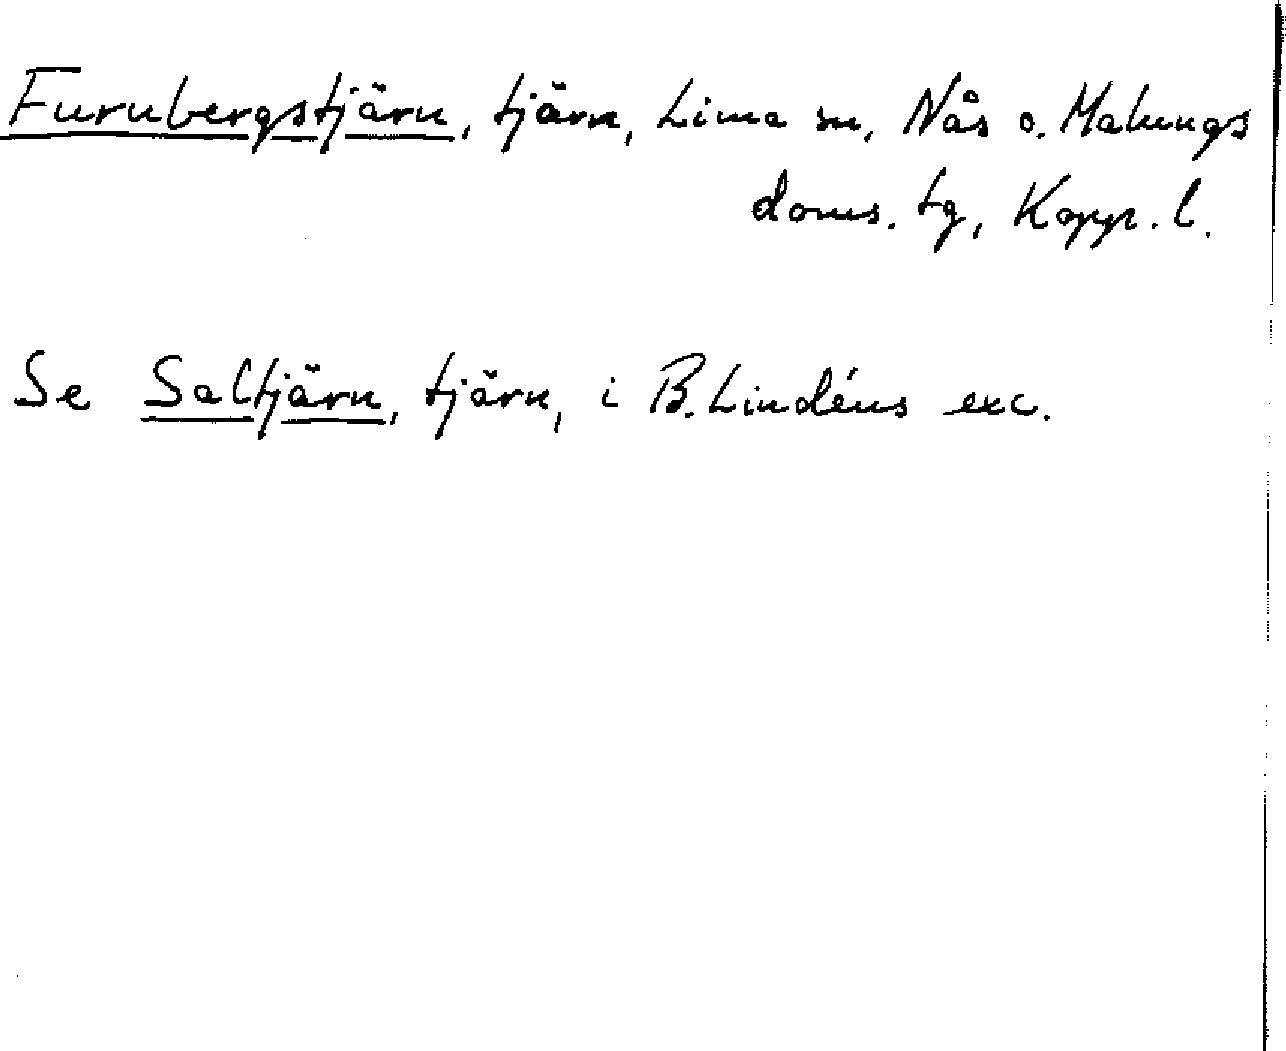 Furubergstjärn, tjärn, Lima sn, Nås o. Malungs
doms. tg, Kopp. l.
Se Saltjärn, tjärn, i B. Lindéns exc.